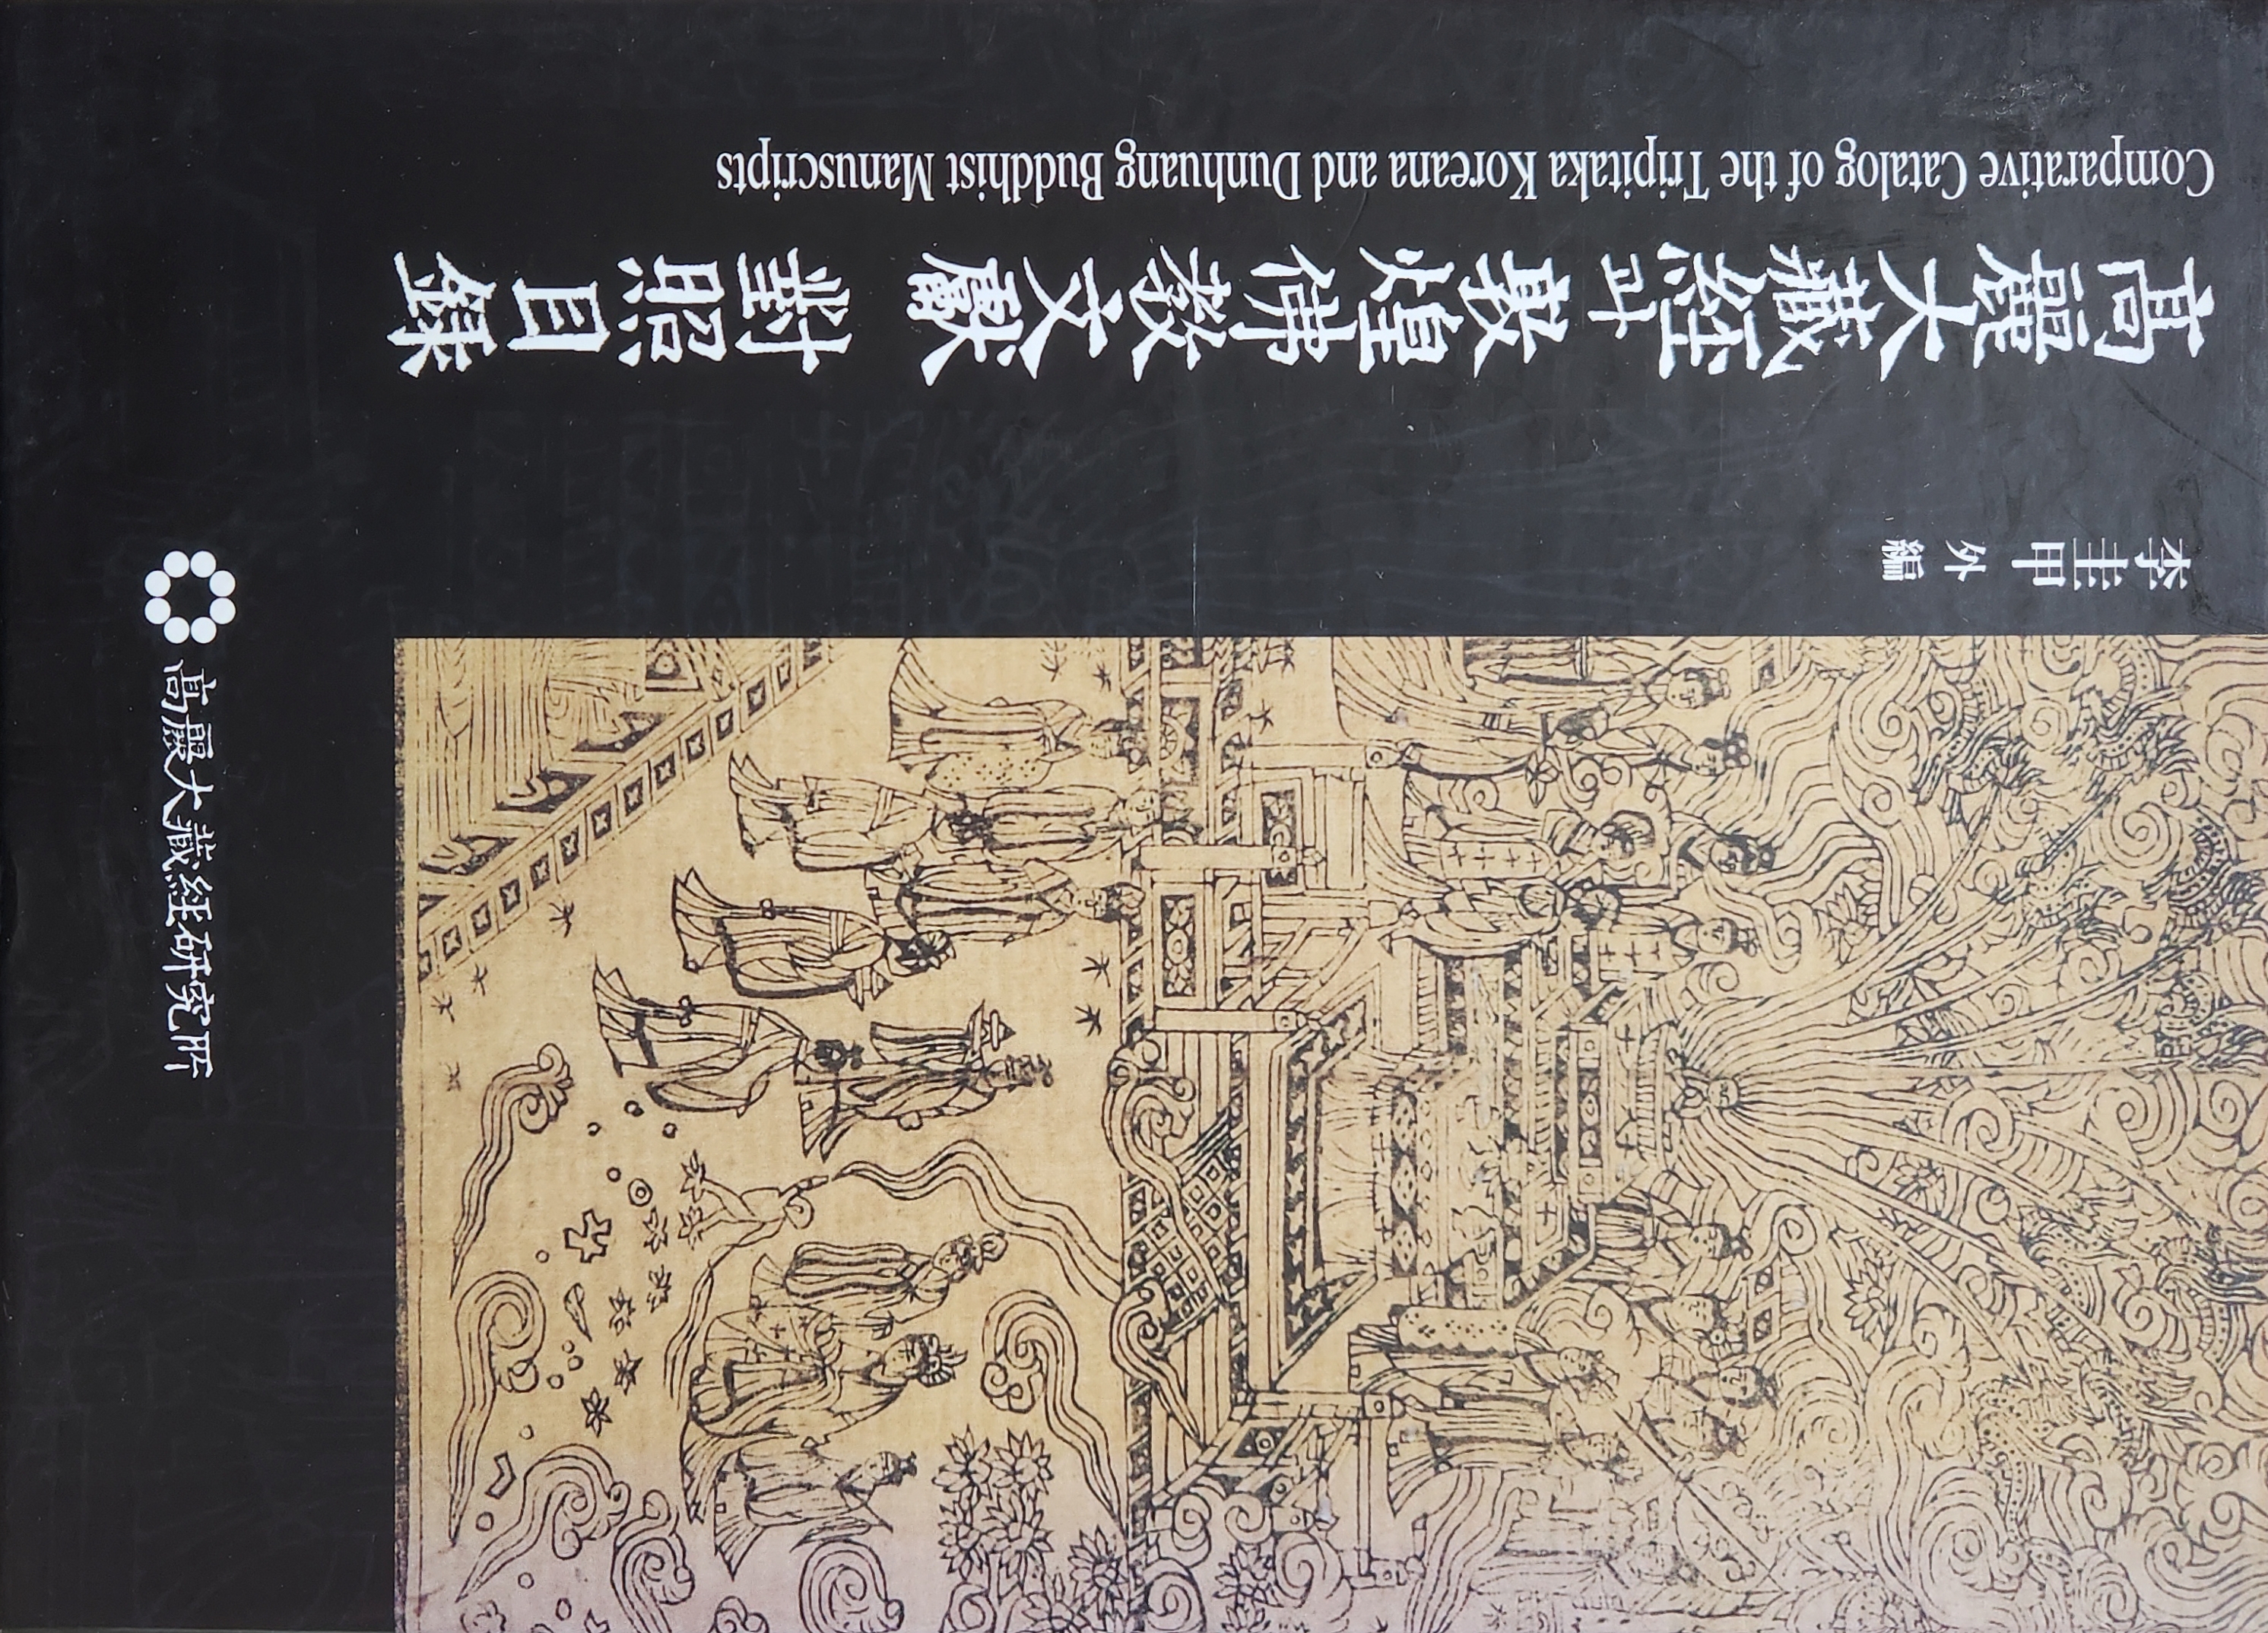 李圭甲 外 編
高麗大藏經과 敦煌佛教文獻 對照目録
Comparative Catalog of the Tripitaka Koreana and Dunhuang Buddhist Manuscripts
高麗大藏經硏究所